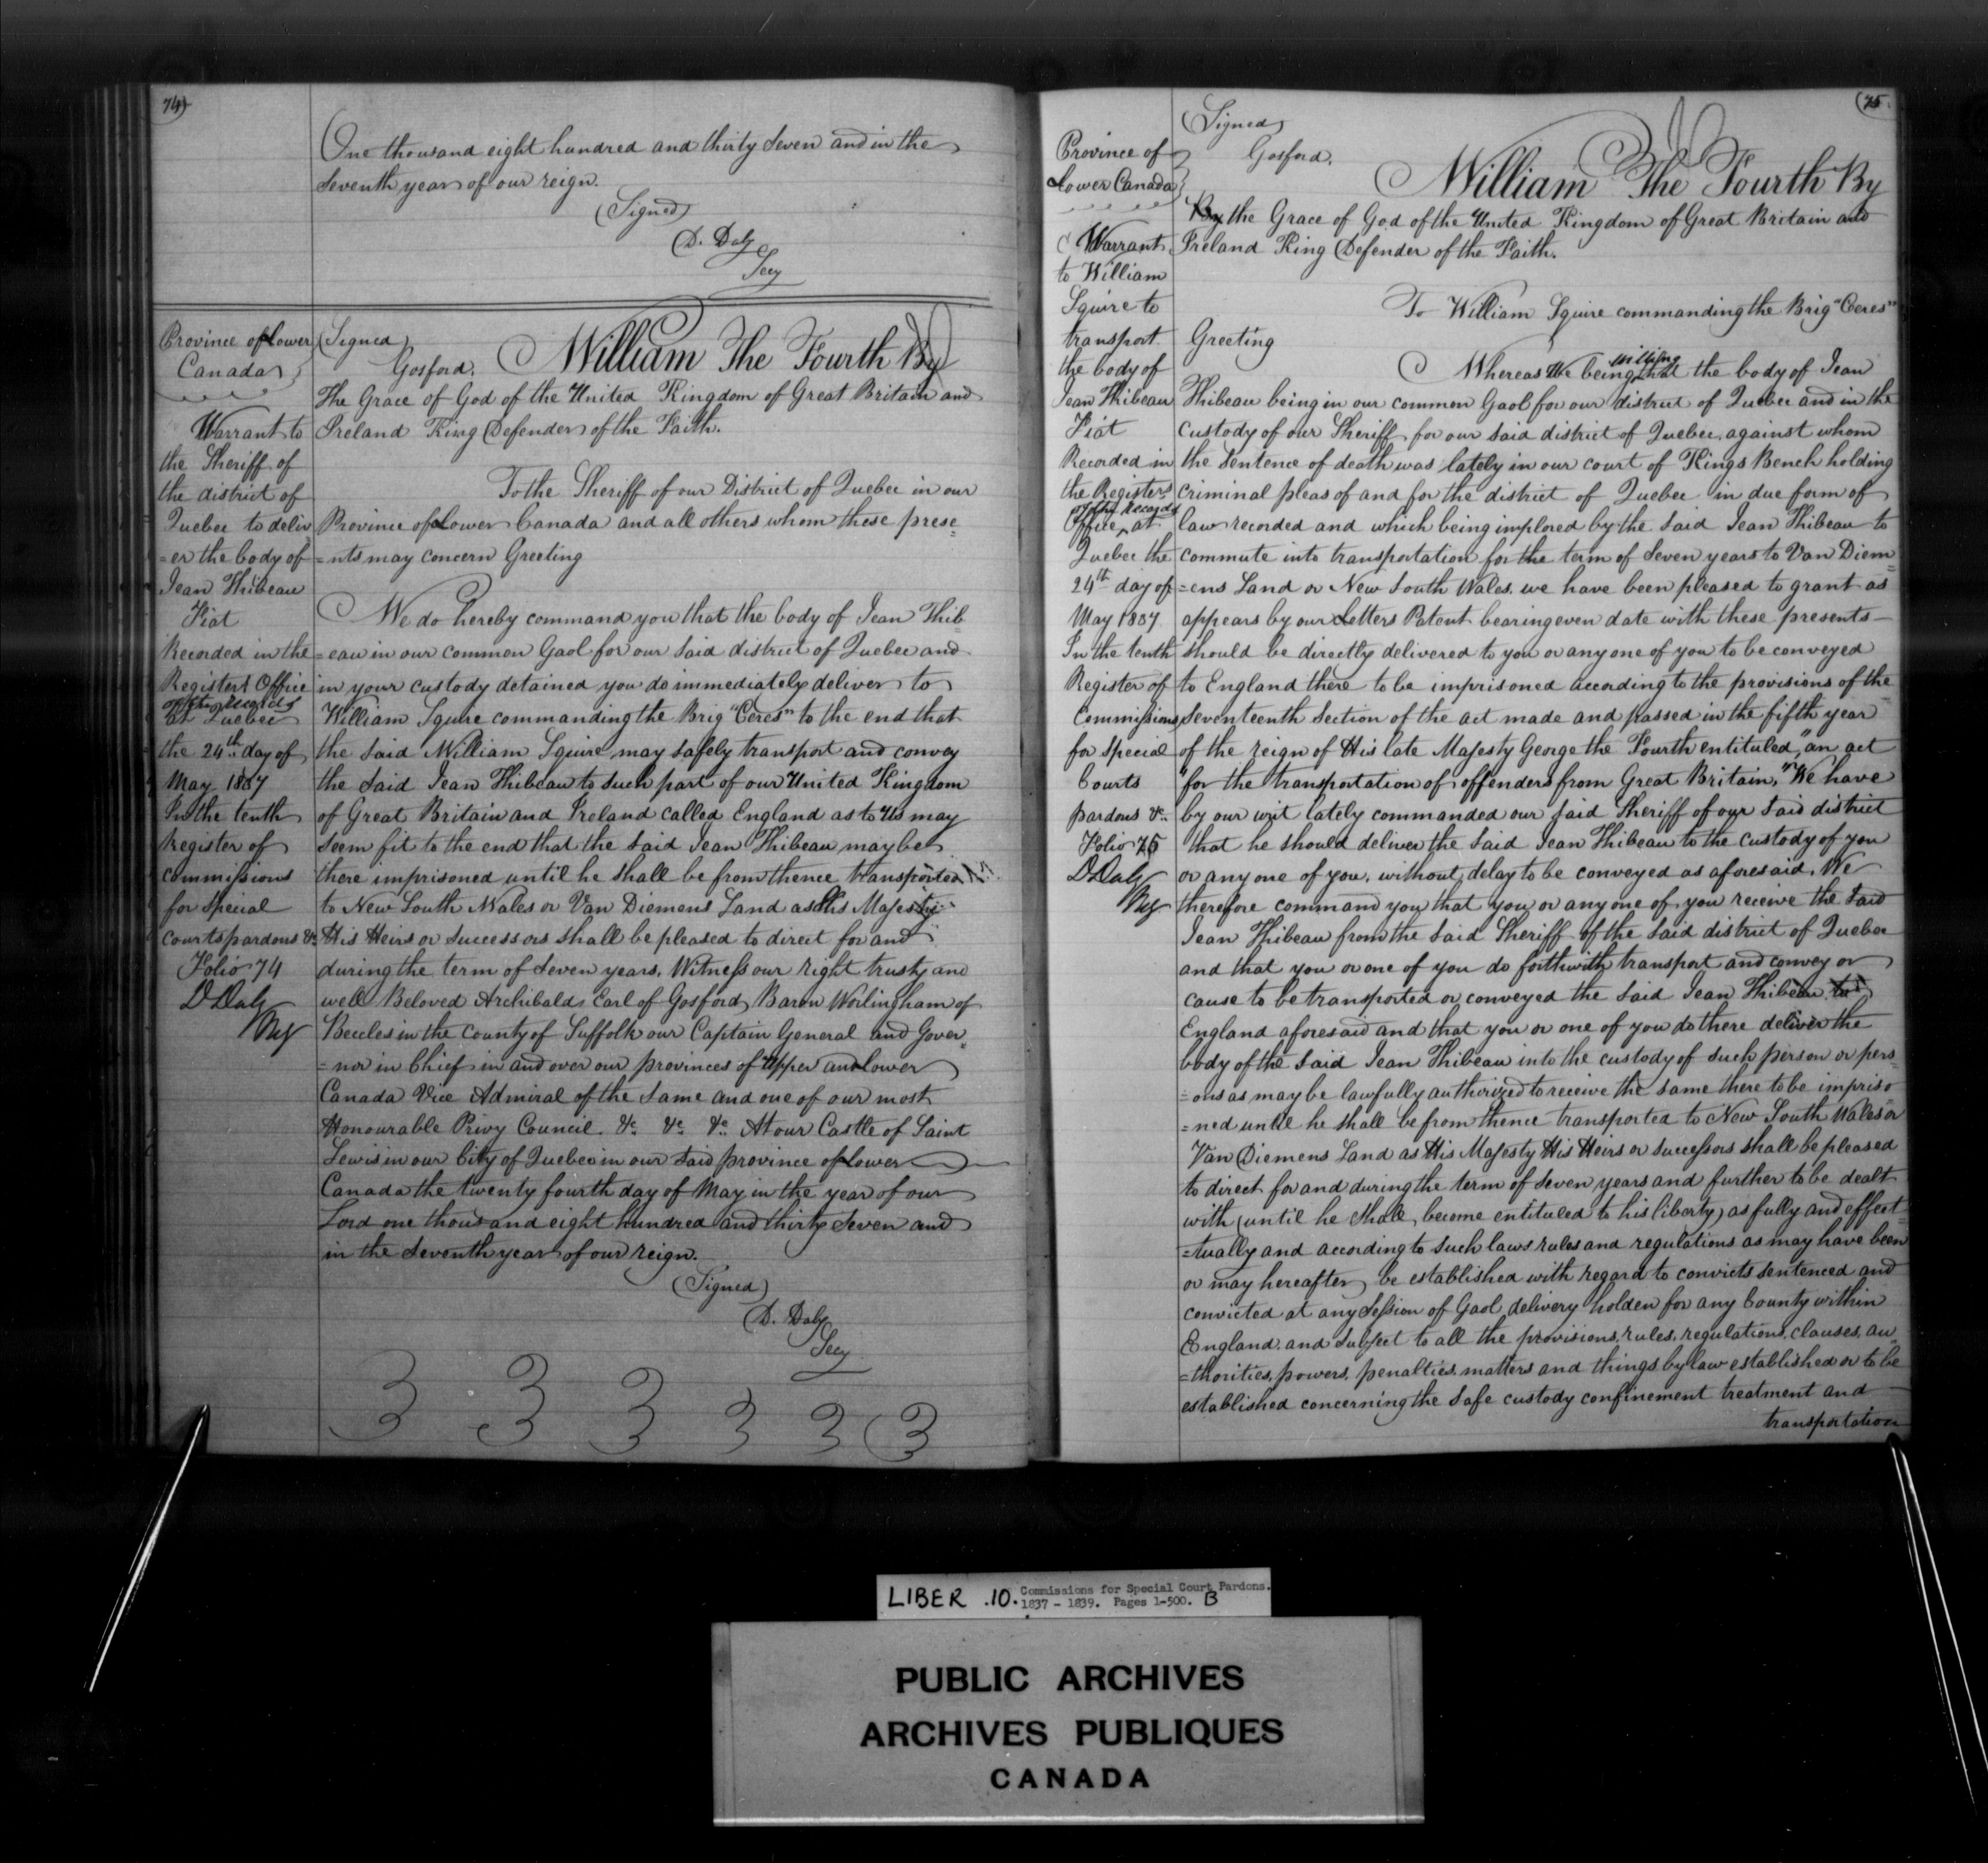 74)
One thousand eight hundred and thirty Seven and in the
Seventh year of our reign.
(Signed)
D. Daly
Secy
Province of Lower
Canada
Warrant to
the Sheriff of
the district of
Quebec to deliv
=er the body of
Jean Thibeau
Fiat
Recorded in the
Registers Office
of the Records
at Quebec
the 24th day of
May 1837
In the tenth
Register of
commissions
for Special
courts pardons &c.
Folio 74
D Daly
Reg
(Signed)
Gosford. William The Fourth By
The Grace of God of the United Kingdom of Great Britain and
Ireland King Defender of the Faith.
To the Sheriff of our District of Quebec in our
Province of Lower Canada and all others whom these prese=
=nts may concern Greeting
We do hereby command you that the body of Jean Thib=
=eau in our common Gaol for our said district of Quebec and
in your custody detained you do immediately deliver to
William Squire commanding the Brig "Ceres" to the end that
the said William Squire may safely transport and convey
the said Jean Thibeau to such part of our United Kingdom
of Great Britain and Ireland called England as to Us may
seem fit to the end that the said Jean Thibeau may be
there imprisoned until he shall be from thence transported
to New South Wales or Van Diemens Land as His Majesty
His Heirs or successors shall be pleased to direct for and
during the term of seven years. Witness our right trusty and
well Beloved Archibald Earl of Gosford Baron Worlingham of
Beccles in the county of Suffolk our Captain General and Gover=
=nor in Chief in and over our provinces of Upper and Lower
Canada Vice Admiral of the same and one of our most
Honourable Privy Council. &c. &c. &c. At our Castle of Saint
Lewis in our City of Quebec in our said province of Lower
Canada the twenty fourth day of May in the year of our
Lord one thousand eight hundred and thirty Seven and
in the Seventh year of our reign.
(Signed)
D. Daly
Secy
3 3 3 3 3 3
(75.
Province of
Lower Canada
Warrant
to William
Squire to
transport
the body of
Jean Thibeau
Fiat
Recorded in
the Registers
of the Records
Office at
Quebec the
24th day of
May 1837
In the tenth
Register of
Commissions
for special
Courts
pardons &c.
Folio 75
D Daly
Reg
(Signed)
Gosford.
William The Fourth By
By the Grace of God of the United Kingdom of Great Britain and
Ireland King Defender of the Faith.
To William Squire commanding the Brig "Ceres"
Greeting
Whereas We being willing that the body of Jean
Thibeau being in our common Gaol for our district of Quebec and in the
custody of our Sheriff for our said district of Quebec, against whom
the sentence of death was lately in our court of Kings Bench holding
criminal pleas of and for the district of Quebec in due form of
law recorded and which being implored by the said Jean Thibeau to
commute into transportation for the term of seven years to Van Diem=
=ens Land or New South Wales, we have been pleased to grant as
appears by our Letters Patent bearing even date with these presents—
should be directly delivered to you or any one of you to be conveyed
to England there to be imprisoned according to the provisions of the
Seventeenth Section of the act made and passed in the fifth year
of the reign of His late Majesty George the Fourth entituled, "an act
"for the transportation of offenders from Great Britain," We have
by our writ lately commanded our said Sheriff of our said district
that he should deliver the said Jean Thibeau to the custody of you
or any one of you, without delay to be conveyed as aforesaid. We
therefore command you that you or any one of you receive the said
Jean Thibeau from the said Sheriff of the said district of Quebec
and that you or one of you do forthwith transport and convey or
cause to be transported or conveyed the said Jean Thibeau to
England aforesaid and that you or one of you do there deliver the
body of the said Jean Thibeau into the custody of such person or pers=
=ons as may be lawfully authorized to receive the same there to be impriso
=ned until he shall be from thence transported to New South Wales or
Van Diemens Land as His Majesty His Heirs or successors shall be pleased
to direct for and during the term of seven years and further to be dealt
with (until he shall become entituled to his liberty) as fully and effect=
=tually and according to such laws rules and regulations as may have been
or may hereafter be established with regard to convicts sentenced and
convicted at any Session of Gaol delivery holden for any County within
England, and subject to all the provisions, rules, regulations, clauses, au=
=thorities, powers, penalties, matters and things by law established or to be
established concerning the safe custody confinement treatment and
transportation
LIBER .10. Commissions for Special Court Pardons.
1837 - 1839. Pages 1-500. B
PUBLIC ARCHIVES
ARCHIVES PUBLIQUES
CANADA